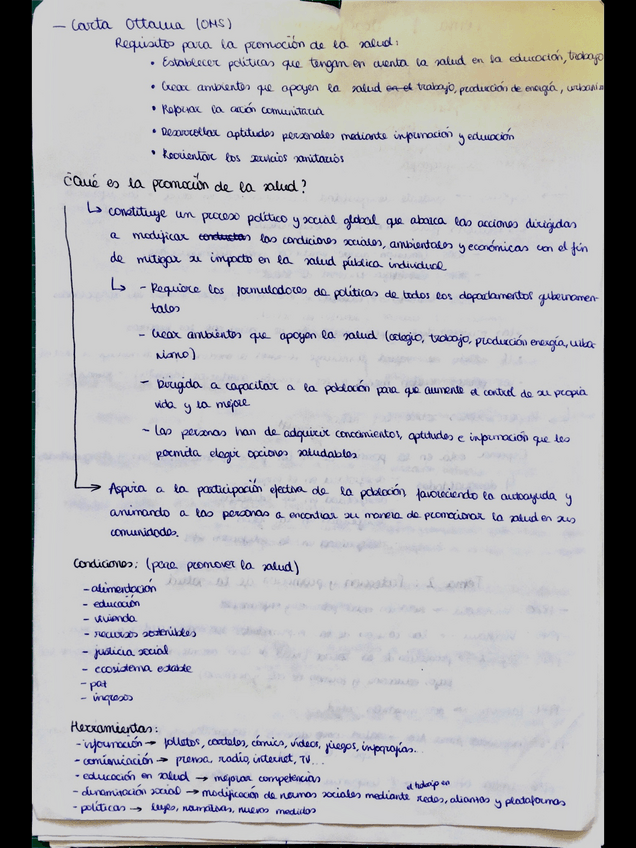 - Carta Ottawa (OMS)
Requisitos para la promoción de la salud:
• Establecer políticas que tengan en cuenta la salud en la educación, trabajo
• Crear ambientes que apoyen la salud en el trabajo, producción de energía, urbanis
• Reforzar la acción comunitaria
• Desarrollar aptitudes personales mediante información y educación
• Reorientar los servicios sanitarios
¿Qué es la promoción de la salud?
↳ constituye un proceso político y social global que abarca las acciones dirigidas
a modificar conductas las condiciones sociales, ambientales y económicas con el fin
de mitigar su impacto en la salud pública individual
↳ - Requiere los formuladores de políticas de todos los departamentos gubernamen-
tales
- Crear ambientes que apoyen la salud (colegio, trabajo, producción energía, urba
nismo)
- Dirigida a capacitar a la población para que aumente el control de su propia
vida y la mejore
- Las personas han de adquirir conocimientos, aptitudes e información que les
permita elegir opciones saludables
→ Aspira a la participación efectiva de la población favoreciendo la autoayuda y
animando a las personas a encontrar su manera de promocionar la salud en sus
comunidades.
Condiciones: (para promover la salud)
- alimentación
- educación
- vivienda
- recursos sostenibles
- justicia social
- ecosistema estable
- paz
- ingresos
Herramientas:
- información → folletos, carteles, cómics, vídeos, juegos, infografías...
- comunicación → prensa, radio, internet, TV...
- educación en salud → mejorar competencias
el trabajo en
- dinaminación social → modificación de normas sociales mediante redes, alianzas y plataformas
- políticas → leyes, normativas, nuevas medidas